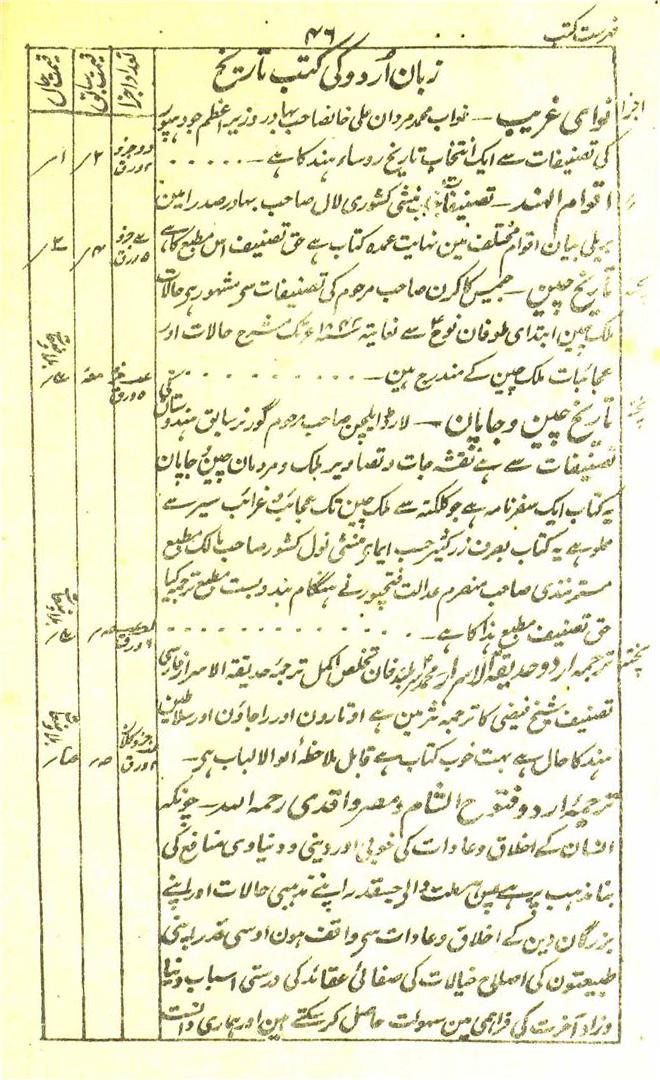 فہرست کتب
۴۶
زبان اُردو کی کتب تاریخ
تعداد اجزا
قیمت سابق
قیمت حال
اجزا
نوای غریب — نواب محمد مردان علی خانصاحب بہادر وزیر اعظم جودہپور
کی تصنیفات سے ایک انتخاب تاریخ روساء ہند کا ہے —
دو جزو
۲ ورق
۲؍
۱؍
اقوام الہند — تصنیفات منشی کشوری لال صاحب بہادر صدر امین
بریلی بیان اقوام مختلف مین نہایت عمدہ کتاب ہے حق تصنیف اس مطبع کا ہے
۵ ورق
۴؍
۳؍
تاریخ چین — جمیس کاکرن صاحب مرحوم کی تصنیفات سی مشہور ہی حالات
ملک چین ابتدای طوفان نوح سے نغایتہ تک مشرح حالات اور
عجائبات ملک چین کے مندرج ہین —
۵ ورق
پختہ
تاریخ چین و جاپان — لارڈ ایلجن صاحب مرحوم گورنر سابق ہندوستان کی
تصنیفات سے ہے نقشہ جات و تصاویر ملک و مردمان چین و جاپان
یہ کتاب ایک سفرنامہ ہے جو کلکتہ سے ملک چین تک عجائب و غرائب سیر سے
مملو ہے یہ کتاب بصرف زر کثیر حسب ایمای منشی نول کشور صاحب مالک مطبع
مسٹر نندی صاحب منصرم عدالت فتحپور نے ہنگام بندوبست مطبع ترجمہ کیا
حق تصنیف مطبع ہذا کا ہے —
۶ ورق
پختہ
ترجمہ اردو حدیقۃ الاسرار خان تخلص اکمل ترجمۂ حدیقۃ الاسرار فارسی
تصنیف شیخ فیضی کا ترجمہ نثر مین ہے اوتارون اور راجاؤن اور سلاطین
ہند کا حال ہے بہت خوب کتاب ہے قابل ملاحظۂ الوالالباب ہی —
۲ ورق
ترجمۂ اردو فتوح الشام و مصر واقدی رحمہ اللہ — چونکہ
انسان کے اخلاق و عادات کی خوبی اور دینی و دنیاوی منافع کی
بنا مذہب پر ہے پس ملت والی جسقدر اپنے مذہبی حالات اور اپنے
بزرگان دین کے اخلاق و عادات سی واقف ہون اوسی قدر اپنی
طبیعتون کی اصلاح خیالات کی صفائی عقائد کی درستی اسباب دنیا
و زاد آخرت کی فراہمی مین سہولت حاصل کر سکتے ہین اور ہماری دانست